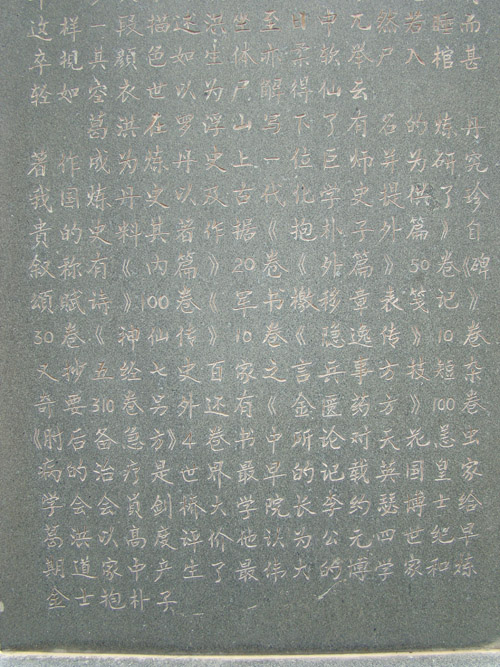 这样一段描还洪坐至日中兀然若睡而
卒视其颜色如生体亦柔软举尸入棺甚
轻如空衣世以为尸解得仙去
葛洪在罗浮山写下了有名的炼丹
著作成为炼丹史上一位巨师并为研究
我国炼丹史以及古代化学史提供了珍
贵的史料其著作据《抱朴子外篇》自
叙称有《内篇》20卷《外篇》50卷《碑
颂赋诗》100卷《军书檄移章表笺记》
30卷《神仙传》10卷《隐逸传》10卷
又抄五经七史百家之言兵事方技短杂
奇要310卷另外还有《金匮药方》100卷
《肘后备急方》4卷书中所论对天花恙虫
病的治疗是世界最早的记载英国皇家
学会会员剑桥大学院长李约瑟博士给
葛洪以高度评价他认为公元四世纪早
期道家中产生了最伟大的博学家和炼
金士抱朴子